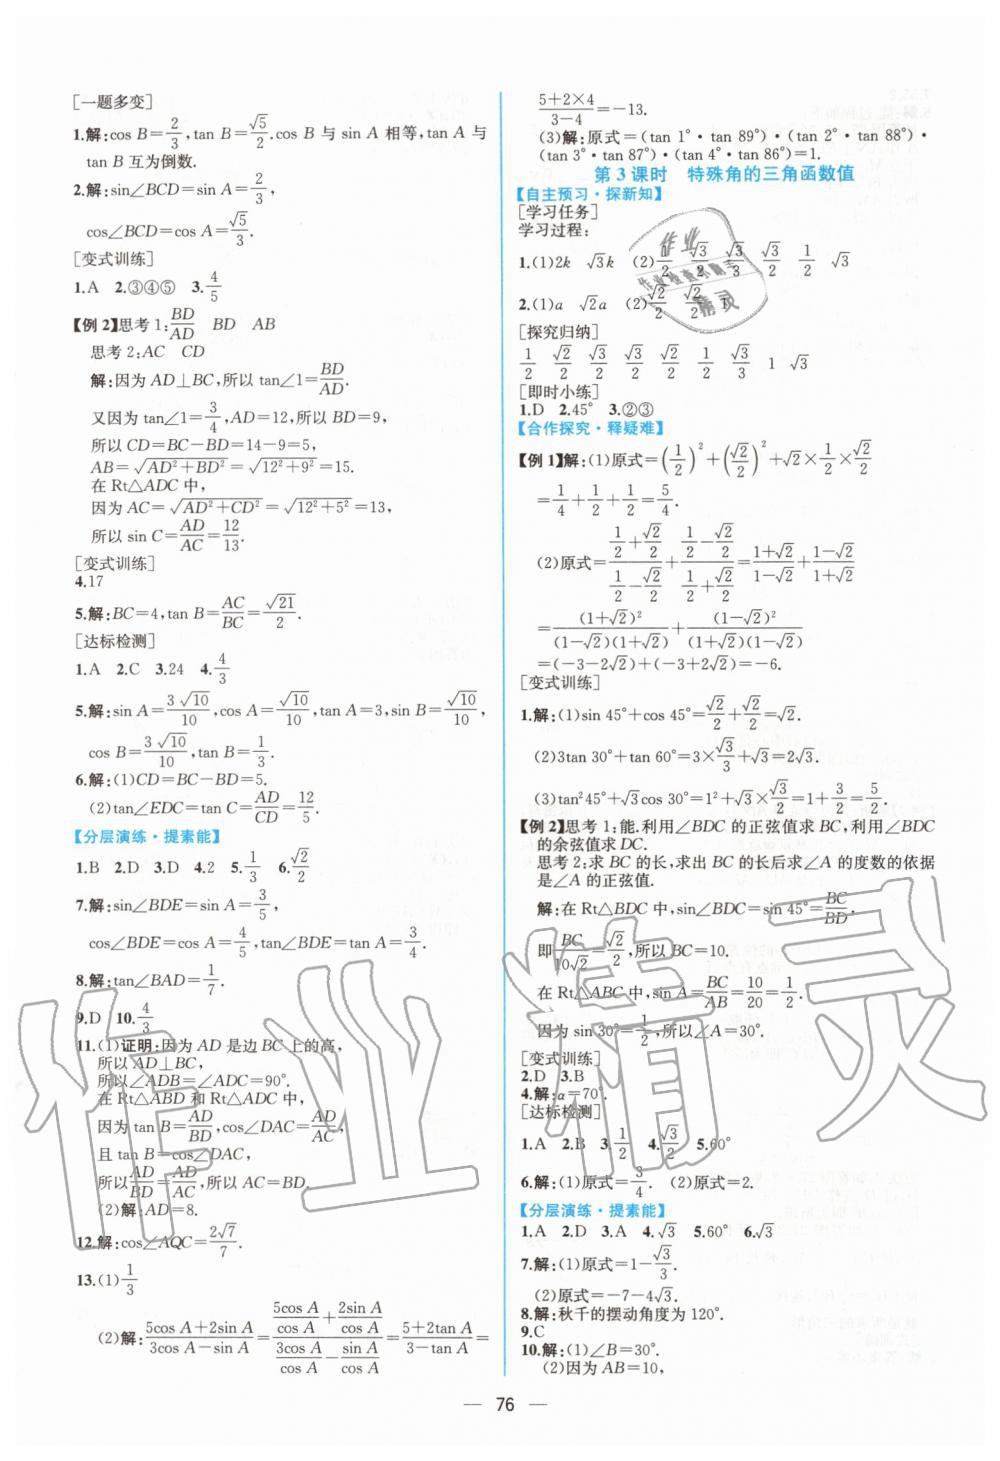 [一题多变]
1.解:cos B=2/3,tan B=√5/2.cos B 与 sin A 相等,tan A 与
tan B 互为倒数.
2.解:sin∠BCD=sin A=2/3,
cos∠BCD=cos A=√5/3.
[变式训练]
1.A 2.③④⑤ 3.4/5
【例 2】思考 1:BD/AD BD AB
思考 2:AC CD
解:因为 AD⊥BC,所以 tan∠1=BD/AD.
又因为 tan∠1=3/4,AD=12,所以 BD=9,
所以 CD=BC-BD=14-9=5,
AB=√(AD²+BD²)=√(12²+9²)=15.
在 Rt△ADC 中,
因为 AC=√(AD²+CD²)=√(12²+5²)=13,
所以 sin C=AD/AC=12/13.
[变式训练]
4.17
5.解:BC=4,tan B=AC/BC=√21/2.
[达标检测]
1.A 2.C 3.24 4.4/3
5.解:sin A=3√10/10,cos A=√10/10,tan A=3,sin B=√10/10,
cos B=3√10/10,tan B=1/3.
6.解:(1)CD=BC-BD=5.
(2)tan∠EDC=tan C=AD/CD=12/5.
【分层演练·提素能】
1.B 2.D 3.D 4.2 5.1/3 6.√2/2
7.解:sin∠BDE=sin A=3/5,
cos∠BDE=cos A=4/5,tan∠BDE=tan A=3/4.
8.解:tan∠BAD=1/7.
9.D 10.4/3
11.(1)证明:因为 AD 是边 BC 上的高,
所以 AD⊥BC,
所以∠ADB=∠ADC=90°.
在 Rt△ABD 和 Rt△ADC 中,
因为 tan B=AD/BD,cos∠DAC=AD/AC,
且 tan B=cos∠DAC,
所以 AD/BD=AD/AC,所以 AC=BD.
(2)解:AD=8.
12.解:cos∠AQC=2√7/7.
13.(1)1/3
(2)解:(5cos A+2sin A)/(3cos A-sin A)=(5cos A/cos A+2sin A/cos A)/(3cos A/cos A-sin A/cos A)=(5+2tan A)/(3-tan A)=
(5+2×4)/(3-4)=-13.
(3)解:原式=(tan 1°·tan 89°)·(tan 2°·tan 88°)·
(tan 3°·tan 87°)·(tan 4°·tan 86°)=1.
第 3 课时 特殊角的三角函数值
【自主预习·探新知】
[学习任务]
学习过程:
1.(1)2k √3k (2)1/2 √3/2 √3/3 √3/2 1/2 √3
2.(1)a √2a (2)√2/2 √2/2 1
[探究归纳]
1/2 √2/2 √3/2 √3/2 √2/2 1/2 √3/3 1 √3
[即时小练]
1.D 2.45° 3.②③
【合作探究·释疑难】
【例 1】解:(1)原式=(1/2)²+(√2/2)²+√2×1/2×√2/2
=1/4+1/2+1/2=5/4.
(2)原式=(1/2+√2/2)/(1/2-√2/2)+(1/2-√2/2)/(1/2+√2/2)=(1+√2)/(1-√2)+(1-√2)/(1+√2)
=(1+√2)²/((1-√2)(1+√2))+(1-√2)²/((1+√2)(1-√2))
=(-3-2√2)+(-3+2√2)=-6.
[变式训练]
1.解:(1)sin 45°+cos 45°=√2/2+√2/2=√2.
(2)3tan 30°+tan 60°=3×√3/3+√3=2√3.
(3)tan²45°+√3cos 30°=1²+√3×√3/2=1+3/2=5/2.
【例 2】思考 1:能.利用∠BDC 的正弦值求 BC,利用∠BDC
的余弦值求 DC.
思考 2:求 BC 的长,求出 BC 的长后求∠A 的度数的依据
是∠A 的正弦值.
解:在 Rt△BDC 中,sin∠BDC=sin 45°=BC/BD.
即BC/10√2=√2/2,所以 BC=10.
在 Rt△ABC 中,sin A=BC/AB=10/20=1/2.
因为 sin 30°=1/2,所以∠A=30°.
[变式训练]
2.D 3.B
4.解:α=70°.
[达标检测]
1.A 2.B 3.1/2 4.√3/2 5.60°
6.解:(1)原式=3/4. (2)原式=2.
【分层演练·提素能】
1.A 2.D 3.A 4.√3 5.60° 6.√3
7.解:(1)原式=1-√3/3.
(2)原式=-7-4√3.
8.解:秋千的摆动角度为 120°.
9.C
10.解:(1)∠B=30°.
(2)因为 AB=10,
— 76 —
作业精灵